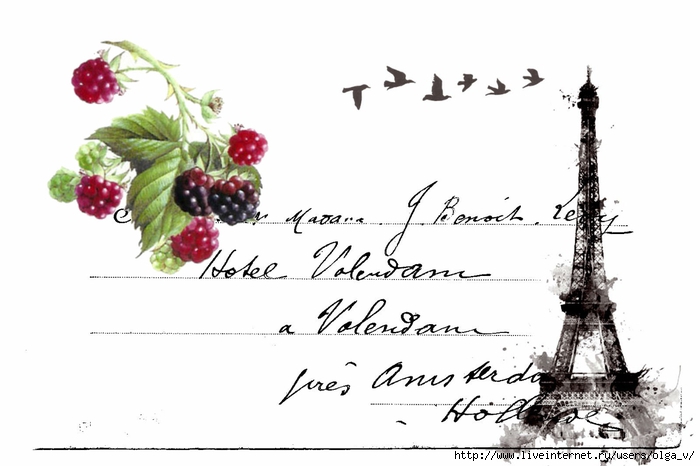 Madame J. Benoit Levy
Hotel Volendam
a Volendam
près Amsterdam
- Hollande
http://www.liveinternet.ru/users/olga_v/